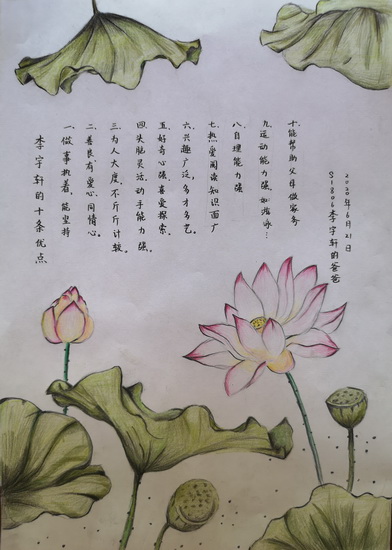 李宇轩的十条优点
一.做事执着,能坚持
二.善良有爱心,同情心。
三.为人大度,不斤斤计较。
四.头脑灵活,动手能力强。
五.好奇心强,喜爱探索。
六.兴趣广泛,多才多艺。
七.热爱阅读知识面广
八.自理能力强
九.运动能力强,如游泳…
十.能帮助父母做家务
S1806李宇轩的爸爸
2020年6月21日